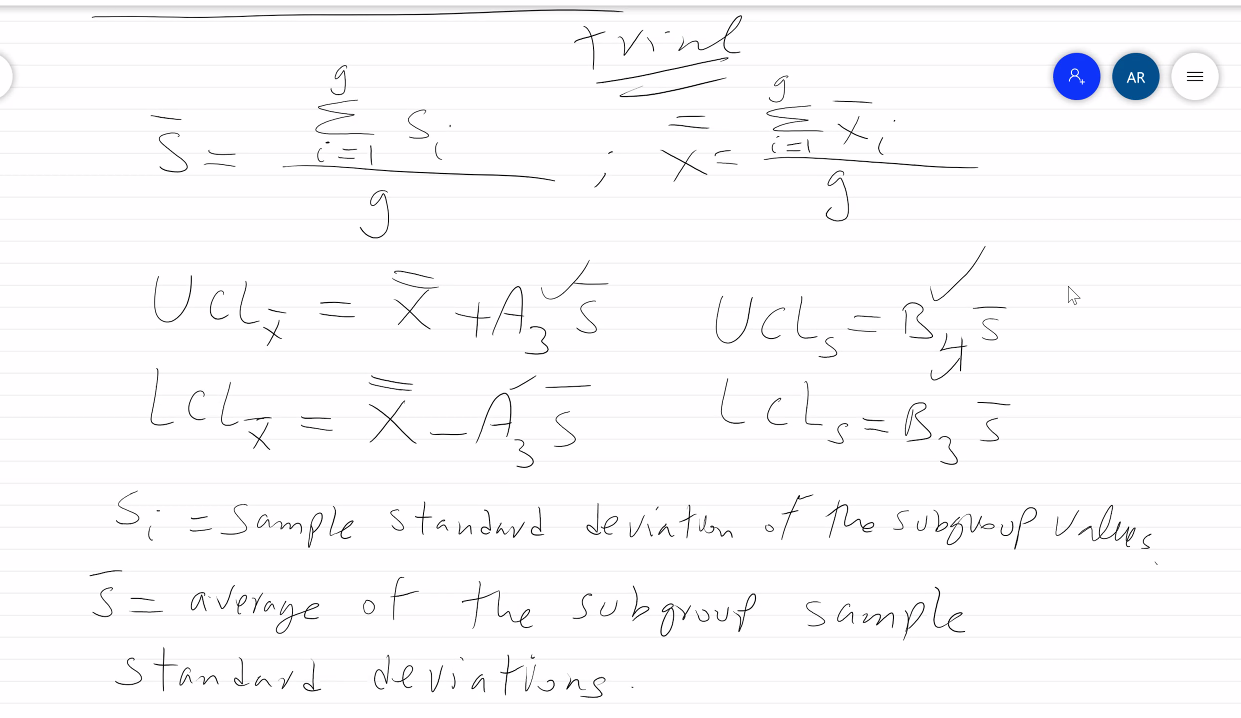 trial
AR
s̄ = \frac{\sum_{i=1}^{g} s_i}{g} ; x̿ = \frac{\sum_{i=1}^{g} x̄_i}{g}
UCL_x̄ = x̿ + A_3 s̄ UCL_s = B_4 s̄
LCL_x̄ = x̿ - A_3 s̄ LCL_s = B_3 s̄
S_i = Sample standard deviation of the subgroup values.
s̄ = average of the subgroup sample
standard deviations.